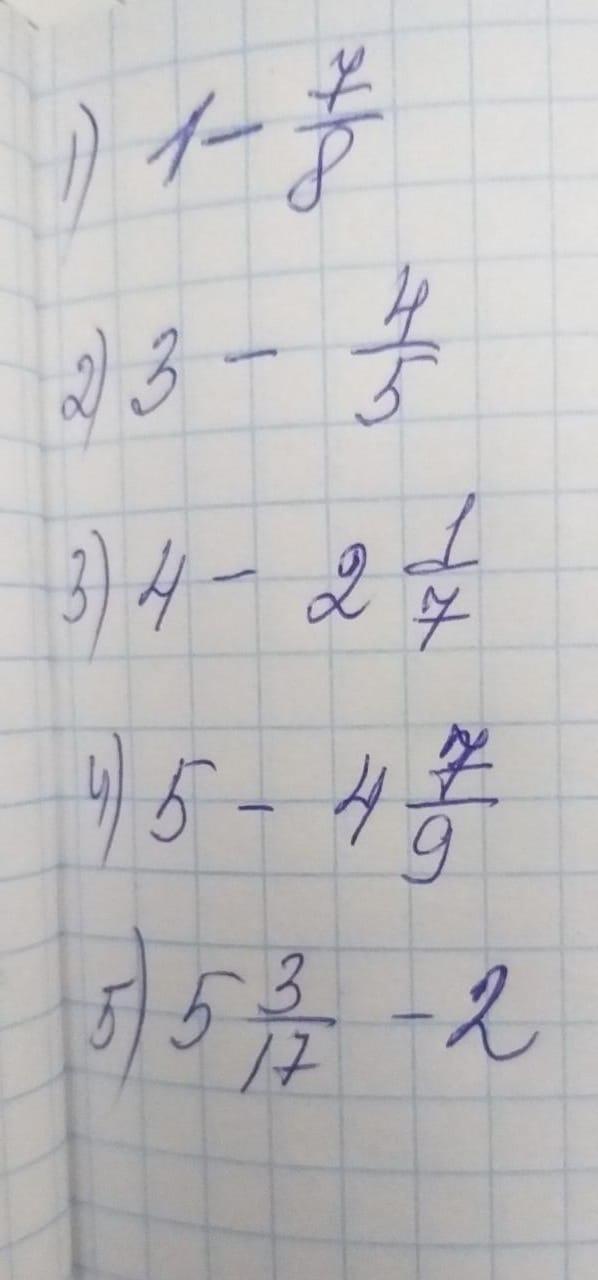 1) 1 - 7/8
2) 3 - 4/5
3) 4 - 2 1/7
4) 5 - 4 7/9
5) 5 3/17 - 2